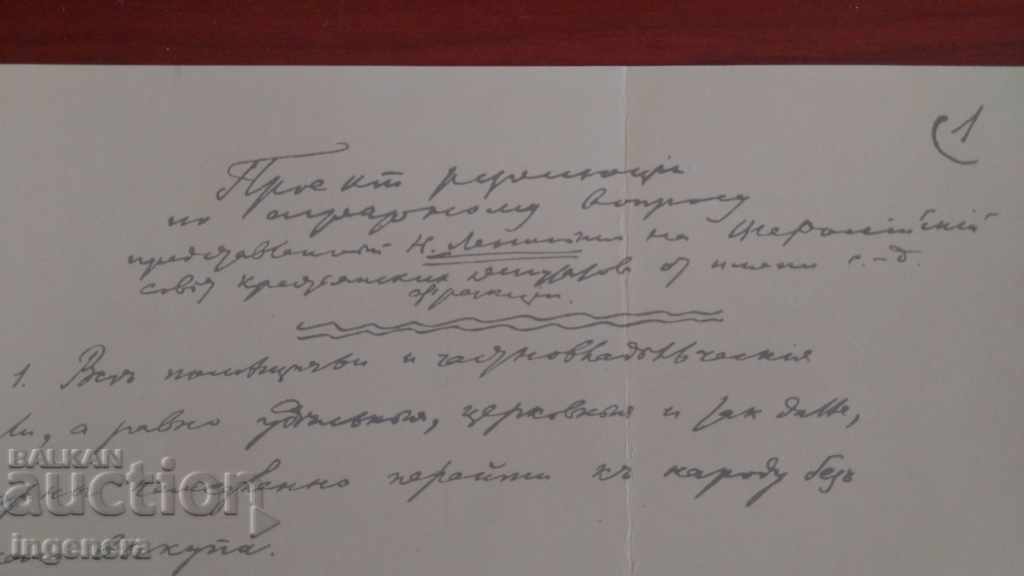 (1
Проект резолюции
по аграрному вопросу
представленный Н. Лениным на Всероссийский
совет крестьянских депутатов от имени с.-д.
фракции.
1. Все помещичьи и частновладельческия
а равно удельныя, церковныя и так далее,
немедленно перейти къ народу безъ
выкупа.
BALKAN
auction
ingenera